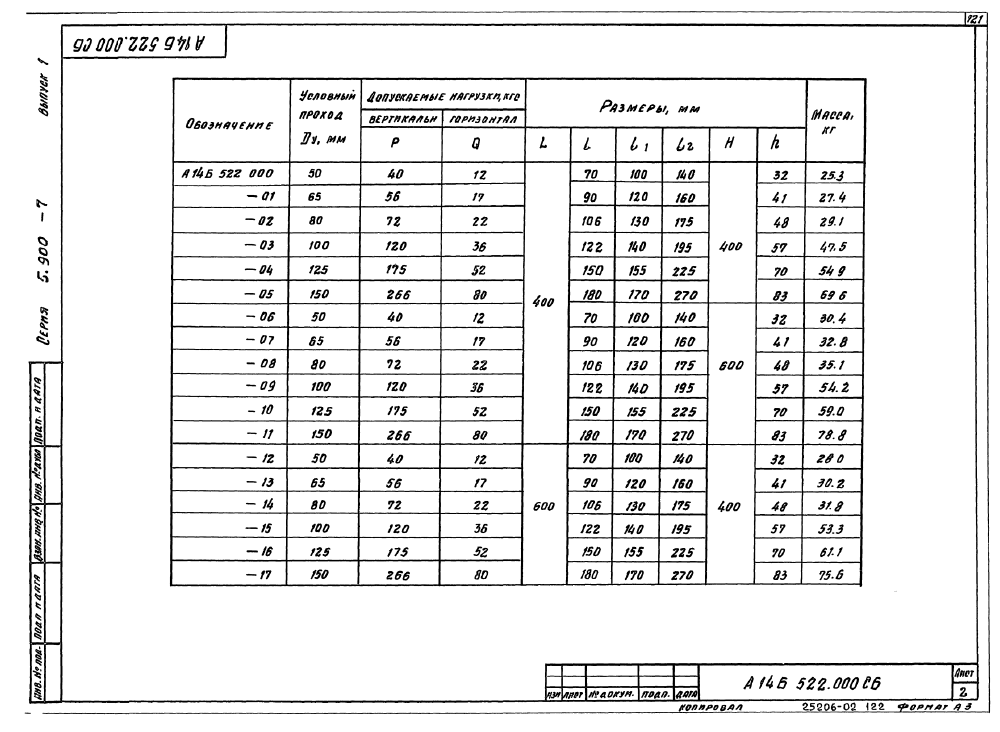 121
А14Б 522.000 СБ
Серия 5.900-7 Выпуск 1
Обозначение
Условный проход Dу, мм
Допускаемые нагрузки, кгс
вертикальн P
горизонтал Q
Размеры, мм
L l l1 l2 H h
Масса, кг
А14Б 522 000 50 40 12 400 70 100 140 400 32 25.3
-01 65 56 17 90 120 160 41 27.4
-02 80 72 22 106 130 175 48 29.1
-03 100 120 36 122 140 195 57 47.5
-04 125 175 52 150 155 225 70 54 9
-05 150 266 80 180 170 270 83 69 6
-06 50 40 12 70 100 140 600 32 30.4
-07 65 56 17 90 120 160 41 32.8
-08 80 72 22 106 130 175 48 35.1
-09 100 120 36 122 140 195 57 54.2
-10 125 175 52 150 155 225 70 59.0
-11 150 266 80 180 170 270 83 78.8
-12 50 40 12 600 70 100 140 400 32 28 0
-13 65 56 17 90 120 160 41 30.2
-14 80 72 22 106 130 175 48 31.8
-15 100 120 36 122 140 195 57 53.3
-16 125 175 52 150 155 225 70 61.1
-17 150 266 80 180 170 270 83 75.6
Инв. № под. Подп и дата Взам. инв № Инв. № дубл Подп. и дата
Изм Лист № докум. Подп. Дата
А14Б 522.000 СБ
Лист
2
Копировал 25206-02 122 Формат А3